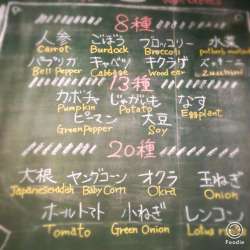 8種
人参 ごぼう ブロッコリー 水菜
Carrot Burdock Broccoli potherb mustard
パプリカ キャベツ キクラゲ ズッキーニ
Bell Pepper Cabbage Wood ear Zucchini
13種
カボチャ じゃがいも なす
Pumpkin Potato Eggplant
ピーマン 大豆
Green Pepper Soy
20種
大根 ヤングコーン オクラ 玉ねぎ
Japanese radish Baby Corn Okra Onion
ホールトマト 小ねぎ レンコン
Tomato Green Onion Lotus
Foodie